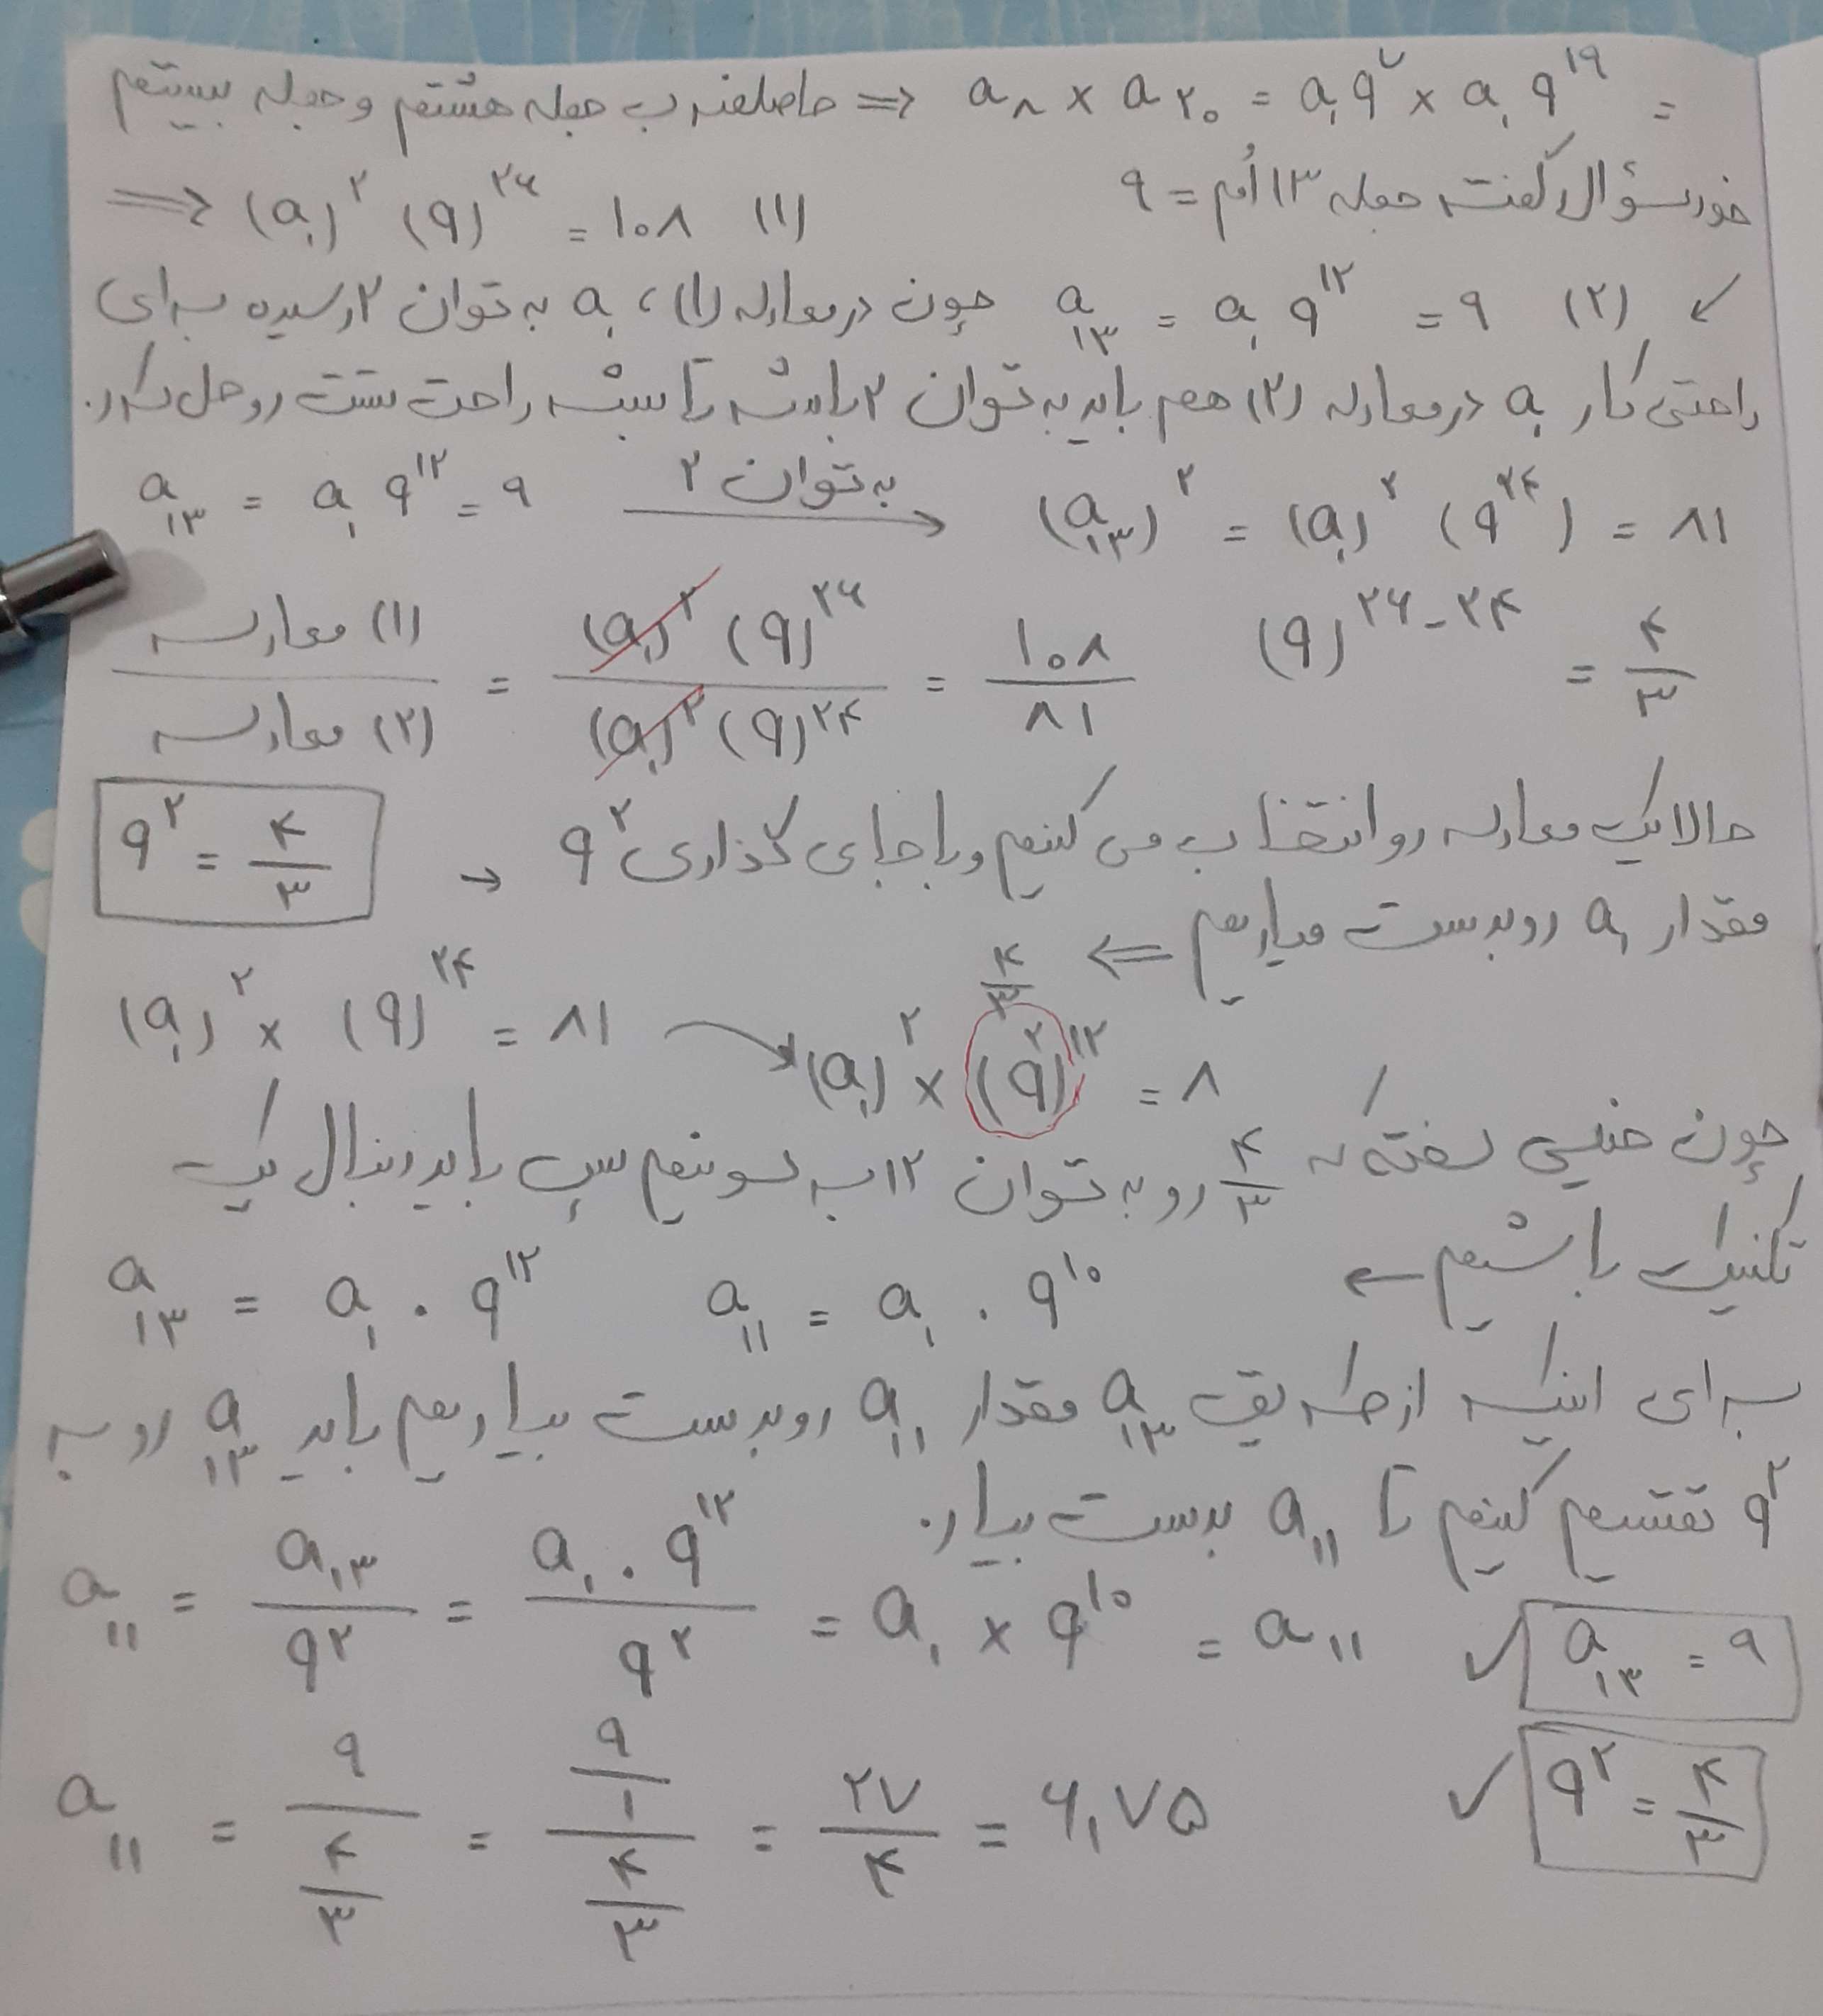 حاصلضرب جمله هشتم و جمله بیستم ⇒ a₈ × a₂₀ = a₁q⁷ × a₁q¹⁹ =
⇒ (a₁)² (q)²⁶ = ۱۰۸ (۱) خود سؤال گفته جمله ۱۳ اُم = ۹
✓ (۲) a₁₃ = a₁ q¹² = ۹ چون در معادله (۱)، a₁ به توان ۲ رسیده برای
راحتی کار a₁ در معادله (۲) هم باید به توان ۲ باشه تا بشه راحت تست رو حل کرد.
a₁₃ = a₁ q¹² = ۹ به توان ۲ → (a₁₃)² = (a₁)² (q²⁴) = ۸۱
معادله (۱) / معادله (۲) = (a₁)² (q)²⁶ / (a₁)² (q)²⁴ = ۱۰۸ / ۸۱ (q)²⁶⁻²⁴ = ۴/۳
q² = ۴/۳ → حالا یک معادله رو انتخاب می کنیم و با جای گذاری q²
مقدار a₁ رو بدست میاریم ⇐
(a₁)² × (q)²⁴ = ۸۱ → (a₁)² × (q²)¹² = ۸ ۴/۳
چون خیلی سخته که ۴/۳ رو به توان ۱۲ برسونیم پس باید دنبال یک
تکنیک باشیم ←
a₁₃ = a₁ . q¹² a₁₁ = a₁ . q¹⁰
برای اینکه از طریق a₁₃ مقدار a₁₁ رو بدست بیاریم باید a₁₃ رو به
q² تقسیم کنیم تا a₁₁ بدست بیاد.
a₁₁ = a₁₃ / q² = a₁ . q¹² / q² = a₁ × q¹⁰ = a₁₁ ✓ a₁₃ = ۹
a₁₁ = ۹ / (۴/۳) = (۹/۱) / (۴/۳) = ۲۷/۴ = ۶,۷۵ ✓ q² = ۴/۳